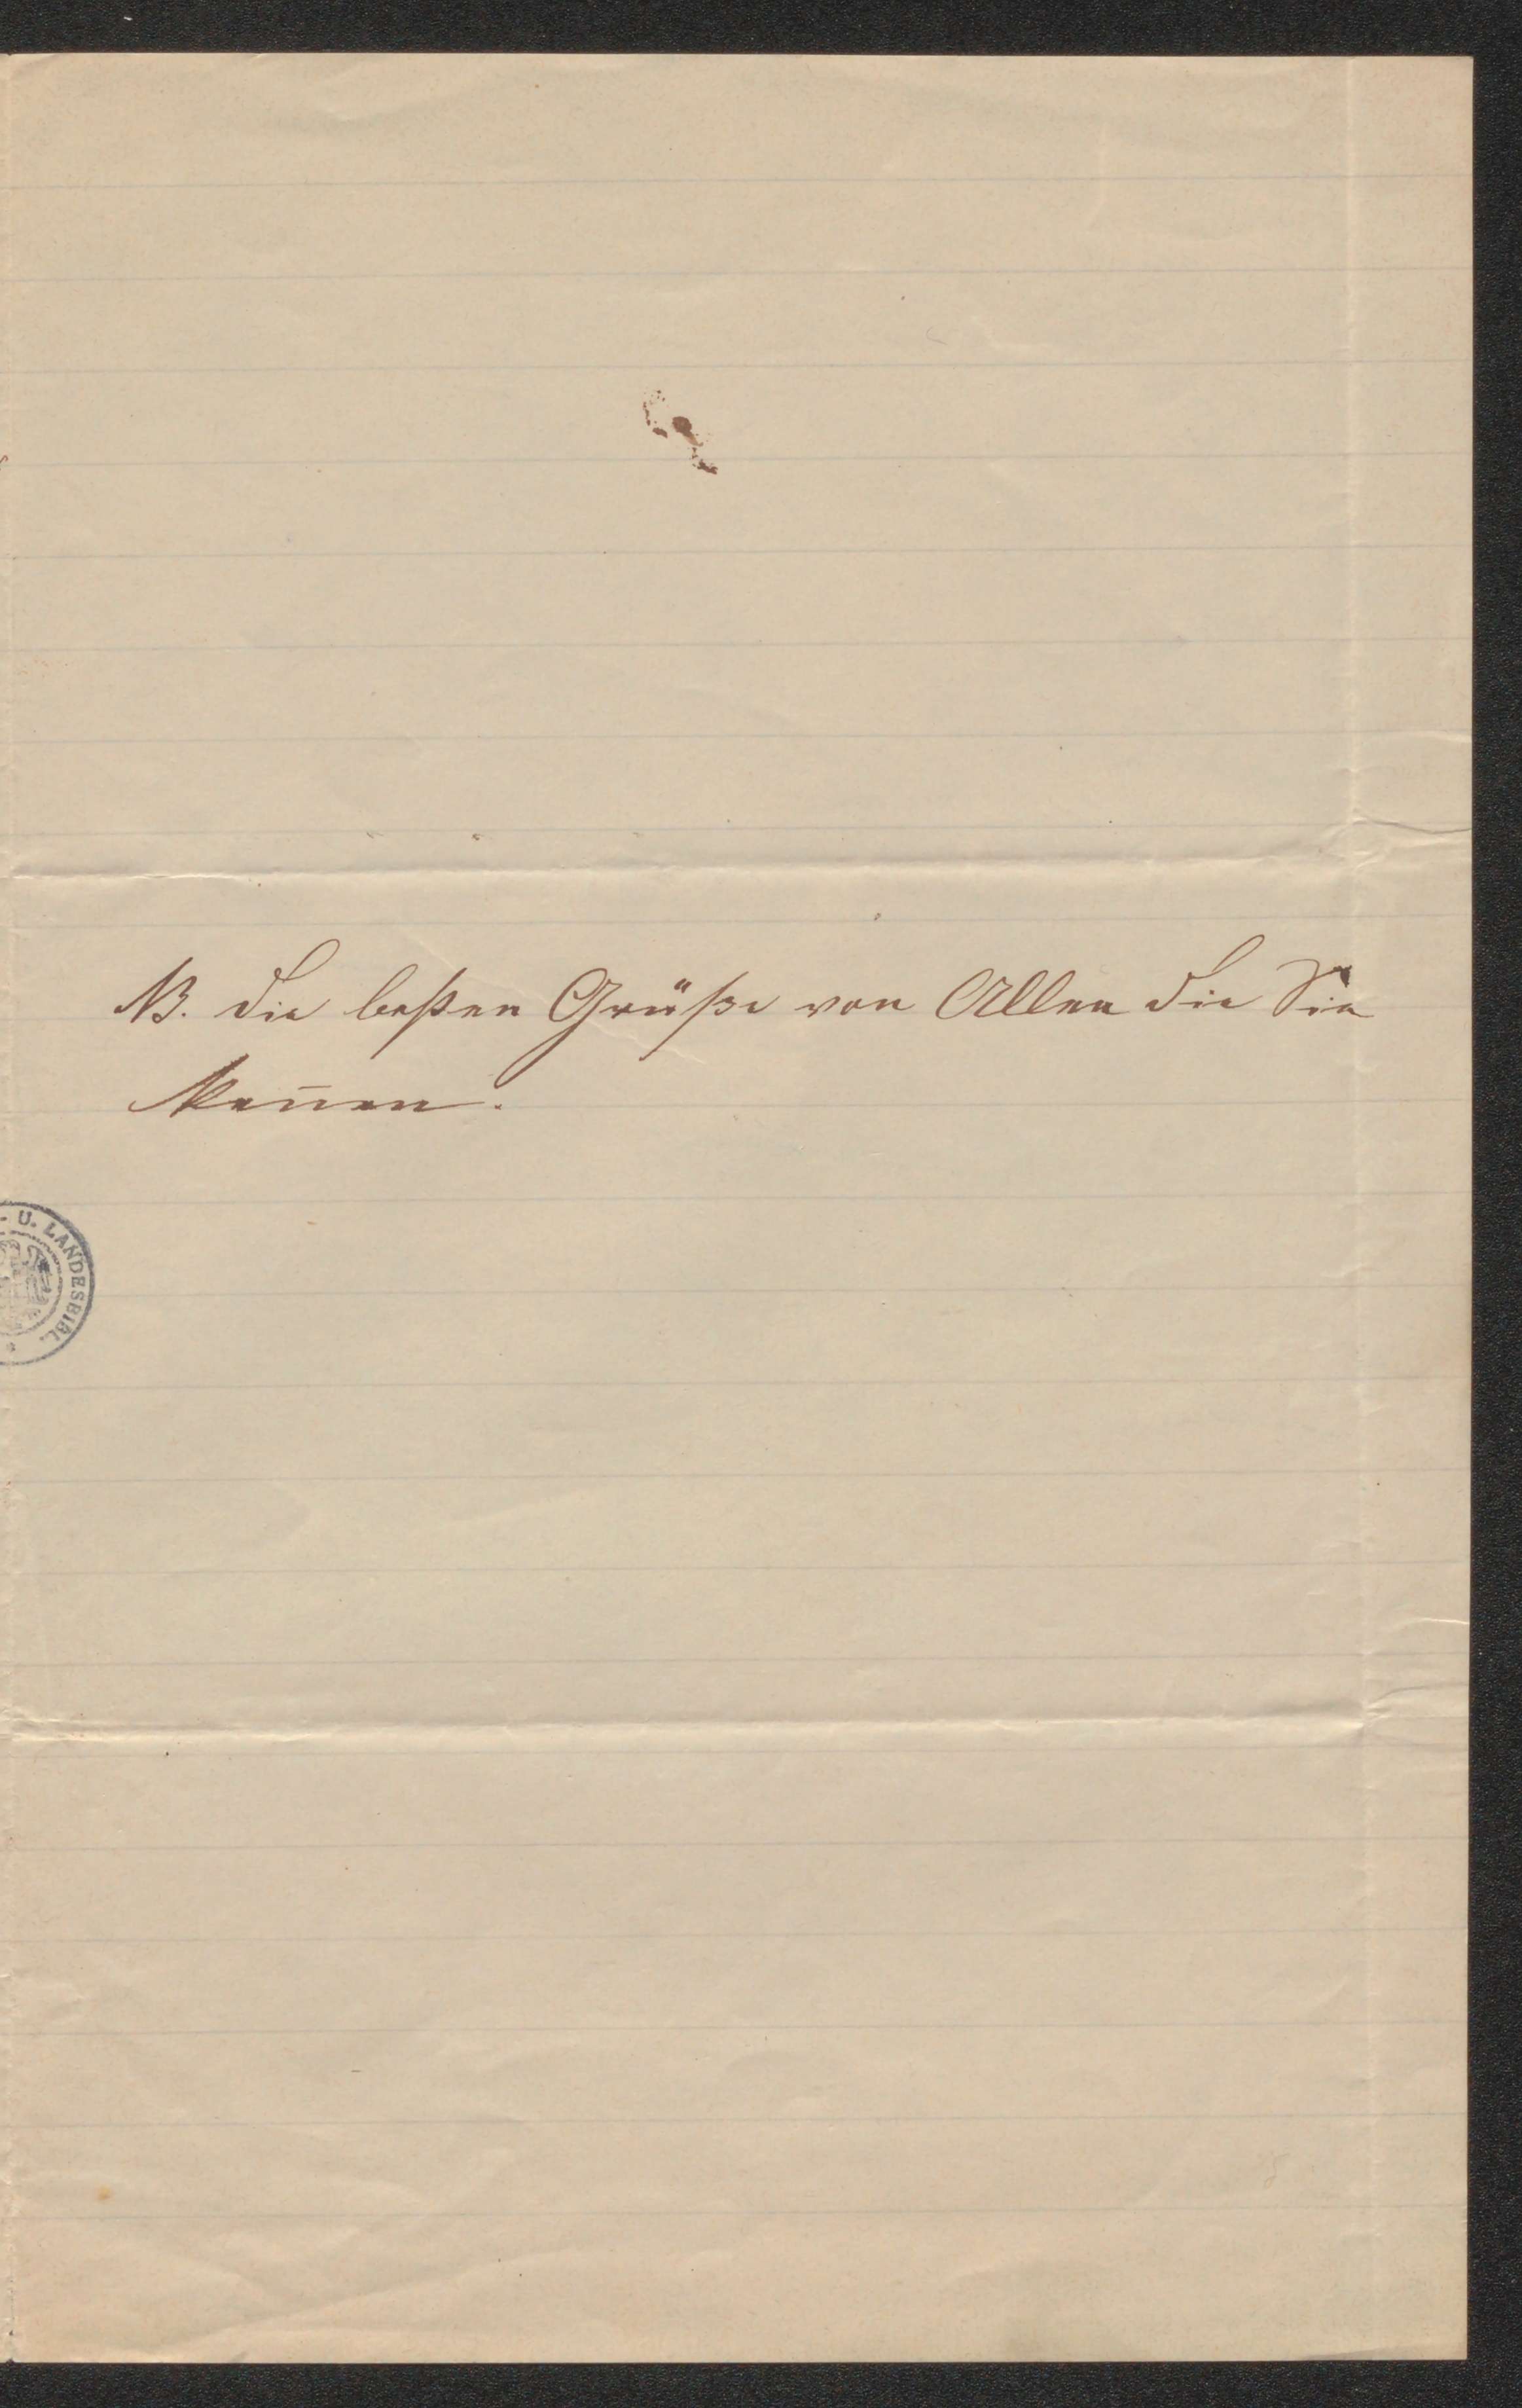 NB. die besten Grüße von Allen die Sie
keñen.
- U. LANDESBIBL.